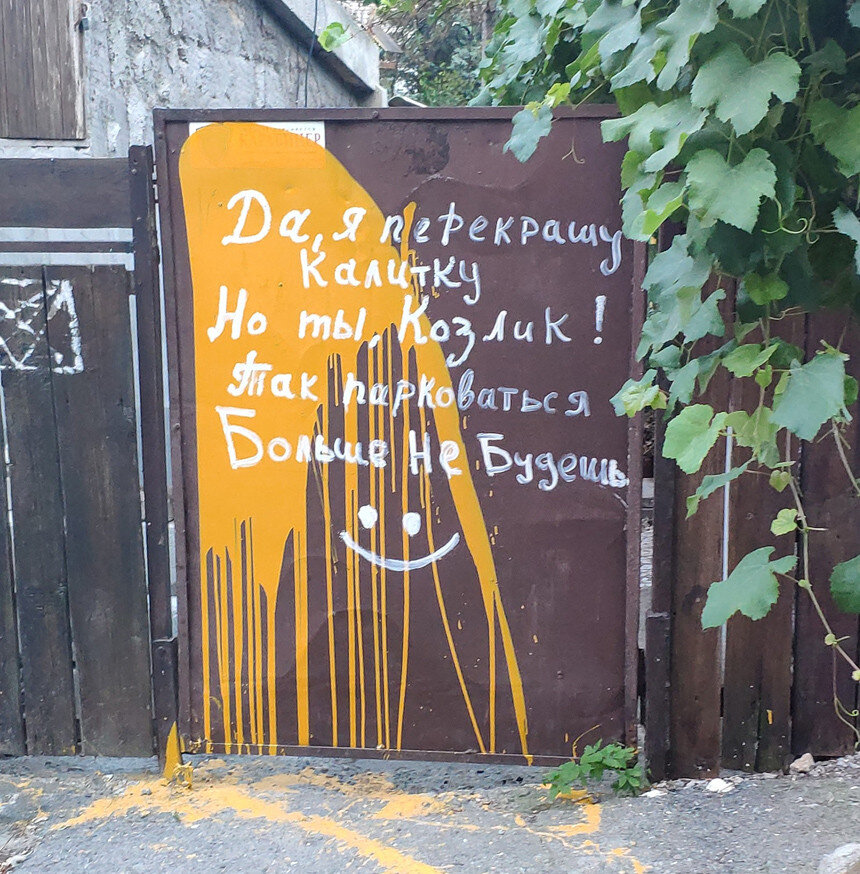 Да, я перекрашу
Калитку
Но ты, Козлик!
Так парковаться
Больше Не Будешь